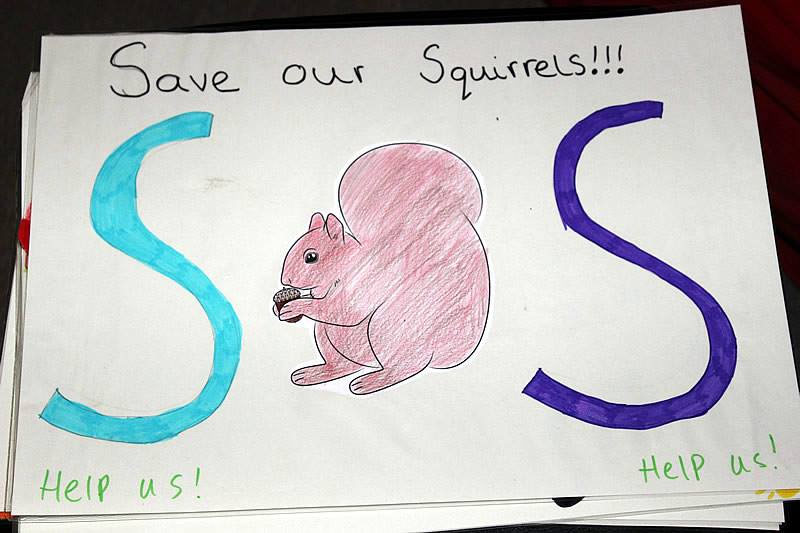 Save our Squirrels!!!
S S
Help us!
Help us!